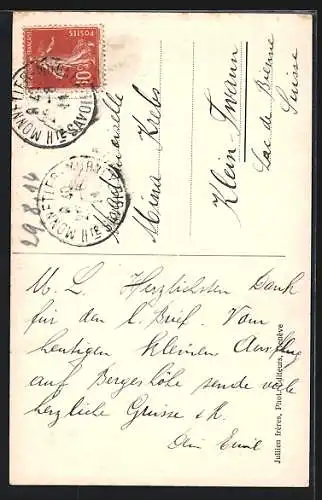 POSTES
10
MONNETIER-MORNEX
Hte SAVOIE
MONNETIER-MORNEX
Hte SAVOIE
29.8.14
Mademoiselle
Mina Krebs
Klein-Twann
Lac de Bienne
Suisse
M. L. Herzlichsten Dank
für den l. Brief. Vom
heutigen kleinen Ausflug
auf Bergeshöhe sende viele
herzliche Grüsse & K.
Dein Emil
Jullien frères, Phot.-Editeurs, Genève